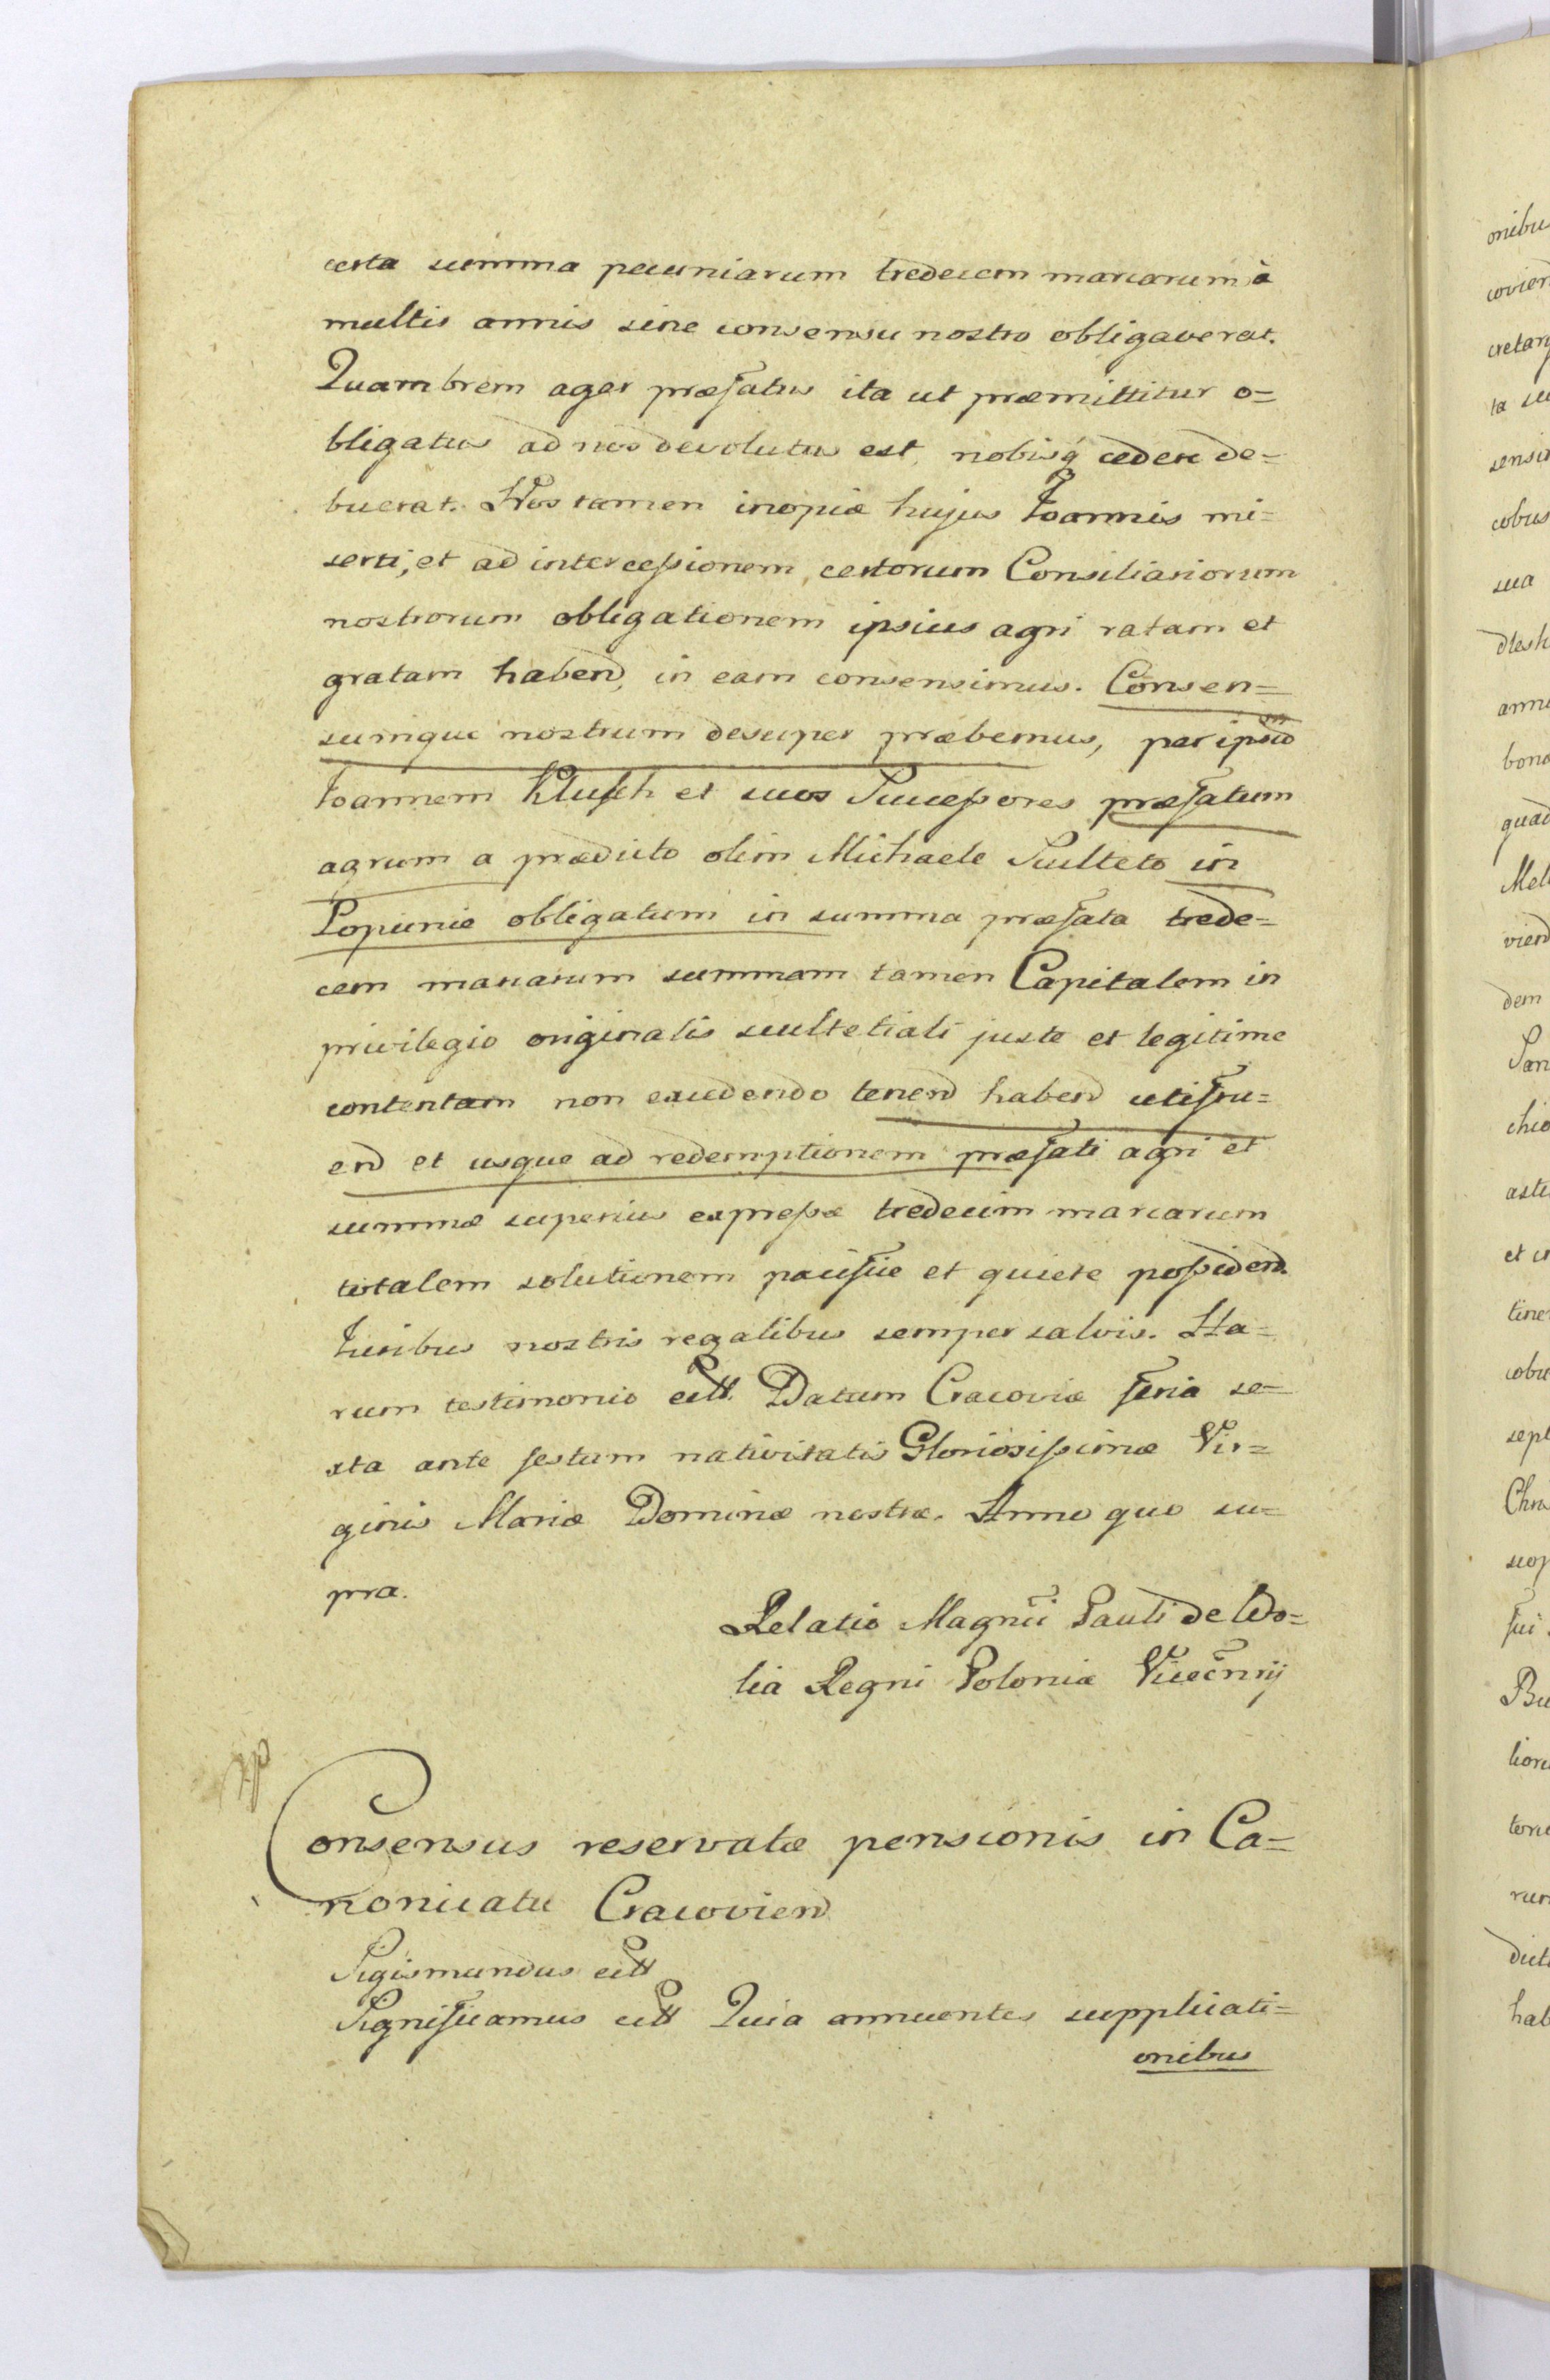 certa summa pecuniarum tredecem marcarum à
multis annis sine consensu nostro obligaverat.
Quambrem ager præfatus ita ut præmittitur o=
bligatus ad nos devolutus est, nobisq cedere de=
buerat. Nos tamen inopiæ hujus Joannis mi=
serti, et ad intercessionem certorum Consiliariorum
nostrorum obligationem ipsius agri ratam et
gratam habend, in eam consensimus. Consen=
sumque nostrum desuper præbemus, per ipsum
Joannem Klusch et suos Successores præfatum
agrum a prædicto olim Michaele Sculteto in
Popiunie obligatum in summa præfata trede=
cem marcarum summam tamen Capitalem in
privilegio originalis scultetiali juste et legitime
contentam non excedendo tenend habend utifru=
end et usque ad redemptionem præfati agri et
summæ superius expressæ tredecim marcarum
totalem solutionem pacifice et quiete possidend.
Juribus nostris regalibus semper salvis. Ha=
rum testimonio ett. Datum Cracoviæ feria se=
xta ante festum nativitatis Gloriosissimæ Vir=
ginis Mariæ Dominæ nostræ. Anno quo su=
pra.
Relatio Magnci Pauli de Wo=
lia Regni Poloniæ Vicecnrij
Consensus reservatæ pensionis in Ca=
nonicatu Cracoviend
Sigismundus ett
Significamus ett Quia annuentes supplicati=
onibus